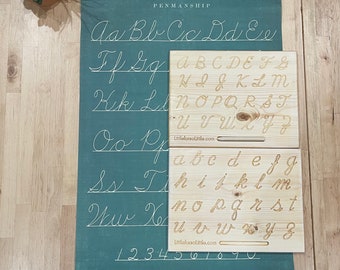 PENMANSHIP
Aa Bb Cc Dd Ee
Ff Gg H
Kk Ll
Oo Pp
Ss Tt
Ww X
1 2 3 4 5 6 7 8 9 0
A B C D E F G
H I J K L M
N O P Q R S T
U V W X Y Z
littlelionslittle.com
a b c d e f g
h i j k l m
n o p q r s t
u v w x y z